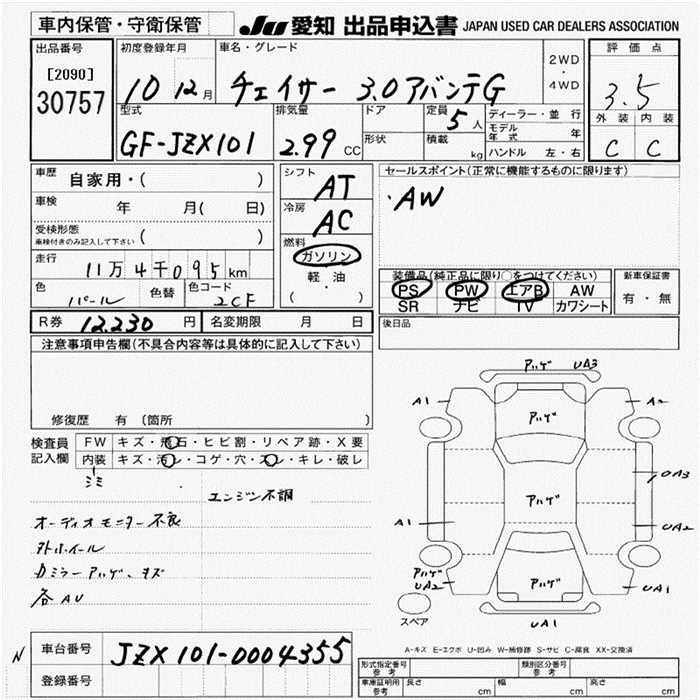 車内保管・守衛保管 JU 愛知 出品申込書 JAPAN USED CAR DEALERS ASSOCIATION
出品番号
[2090]
30757
初度登録年月
10 12月
車名・グレード
チェイサー 3.0アバンテG
2WD
・
4WD
評価点
3.5
外装 内装
C C
型式
GF-JZX101
排気量
2.99 CC
ドア
形状
定員
5人
積載
kg
ディーラー・並行
モデル年式 年
ハンドル 左・右
車歴 自家用・( )
車検 年 月( 日)
受検形態
車検付きのみ記入して下さい ( )
走行 11万4千095km
色 パール 色替 色コード 2CF
シフト AT
冷房 AC
燃料
ガソリン
軽・油
( )
セールスポイント(正常に機能するものに限ります)
・AW
装備品(純正品に限り○をつけてください)
PS PW エアB AW
SR ナビ TV カワシート
新車保証書
有・無
R券 12,230円 名変期限 月 日
後日品
注意事項申告欄(不具合内容等は具体的に記入して下さい)
修復歴 有 (箇所 )
検査員記入欄
FW キズ・飛石・ヒビ割・リペア跡・X要
内装 キズ・汚レ・コゲ・穴・スレ・キレ・破レ
シミ
エンジン不調
オーディオモニター不良
外ホイール
Dミラーアハゲ、キズ
各AU
アハゲ UA3
A1 A2
アハゲ
UA3
アハゲ
A1 UA2
アハゲ
UA2
アハゲ
UA1
スペア
UA1
A-キズ E-エクボ U-凹み W-補修跡 S-サビ C-腐食 XX-交換済
N 車台番号 JZX101-0004355
登録番号
形式指定番号 参考
類別区分番号 参考
車庫証明用 参考 長さ cm 幅 cm 高さ cm